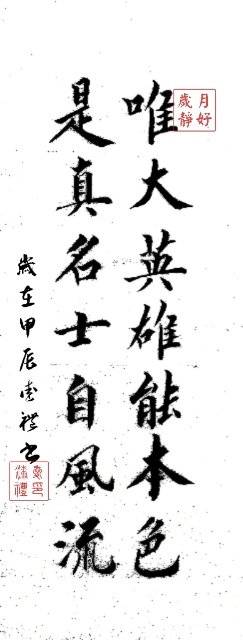 唯大英雄能本色
是真名士自風流
歲在甲辰
月好
歲靜